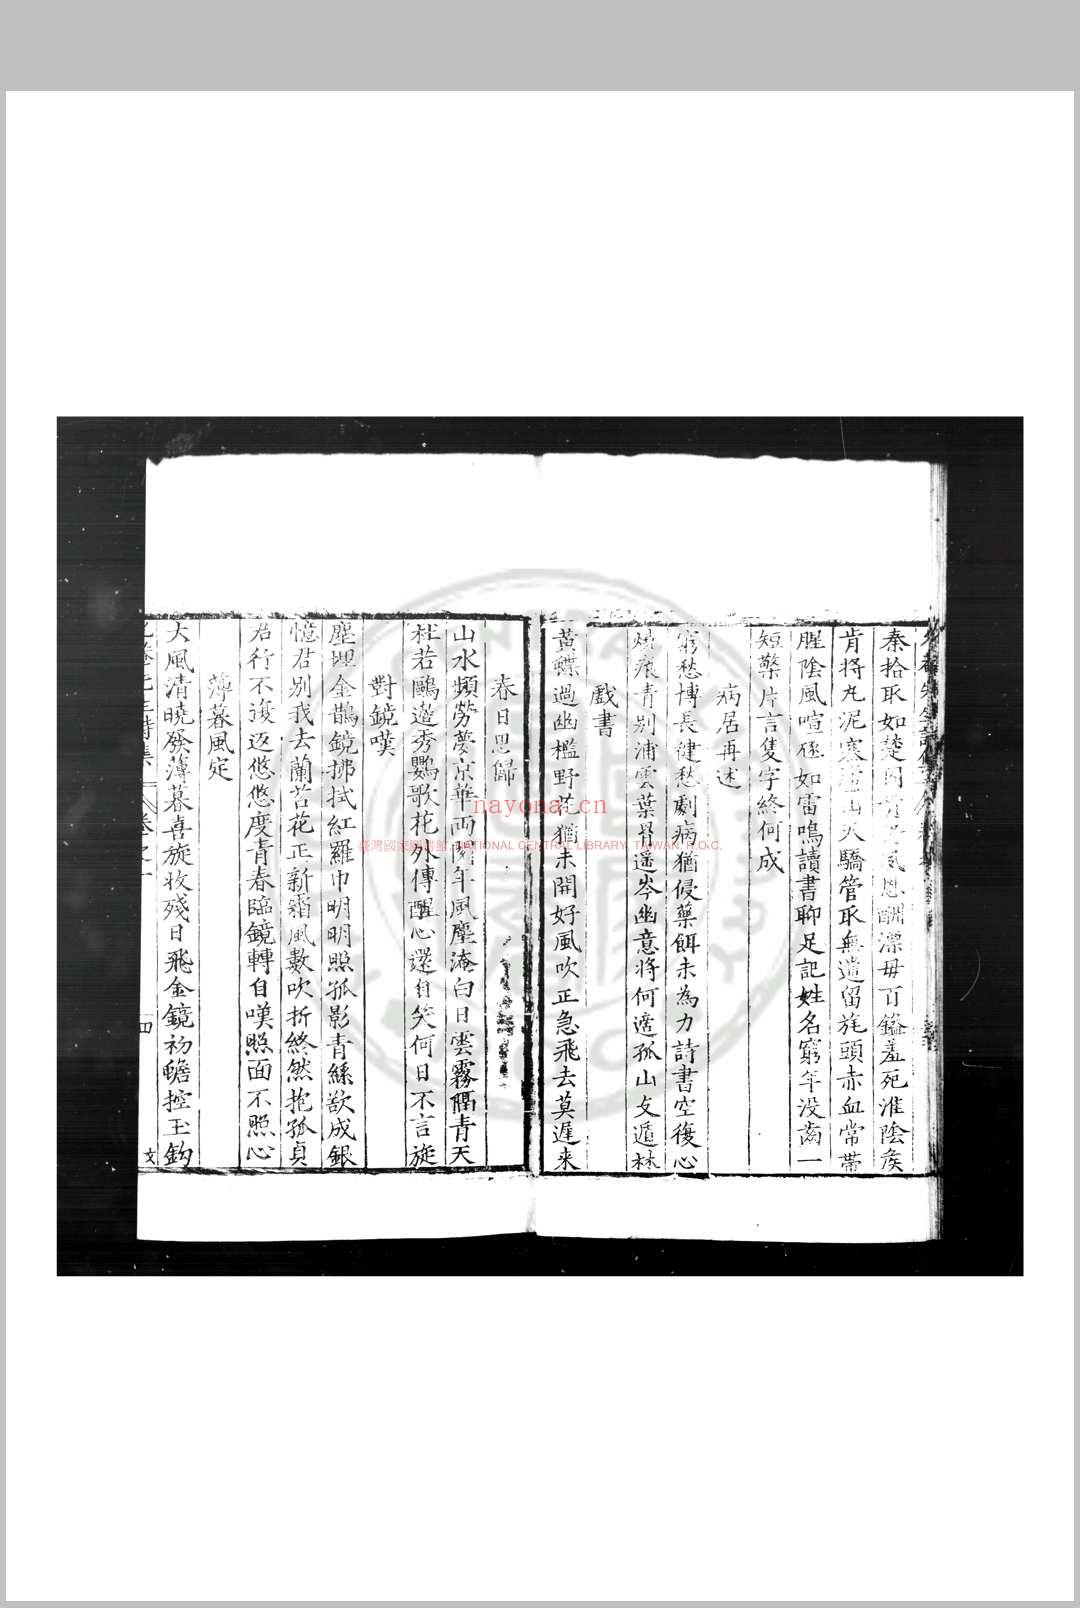 秦拾取如楚國 恩酬漂母百鎰羞死淮陰侯
肯將丸泥塞 山天驕管取無遺留旄頭赤血常帶
腥陰風喧豗如雷鳴讀書聊足記姓名窮年没齒一
短檠片言隻字終何成
病居再述
窮愁博長健愁劇病猶侵藥餌未為力詩書空復心
燒痕青别浦雲葉骨遥岑幽意將何適孤山支遁林
戲書
黃蝶過幽檻野花猶未開好風吹正急飛去莫遲来
春日思歸
山水頻勞夢京華两 年風塵淹白日雲霧隔青天
杜若鷗邊秀鸚歌花外傳醒心還自笑何日不言旋
對鏡嘆
塵埋金鵲鏡拂拭紅羅巾明明照孤影青絲欲成銀
憶君别我去蘭苕花正新霜風數吹折終然抱孤貞
君行不復返悠悠度青春臨鏡轉自嘆照面不照心
薄暮風定
大風清曉發薄暮喜旋收殘日飛金鏡初蟾控玉鈎
四
文
nayona.cn
臺灣國家圖書館 NATIONAL CENTRAL LIBRARY, TAIWAN, R.O.C.